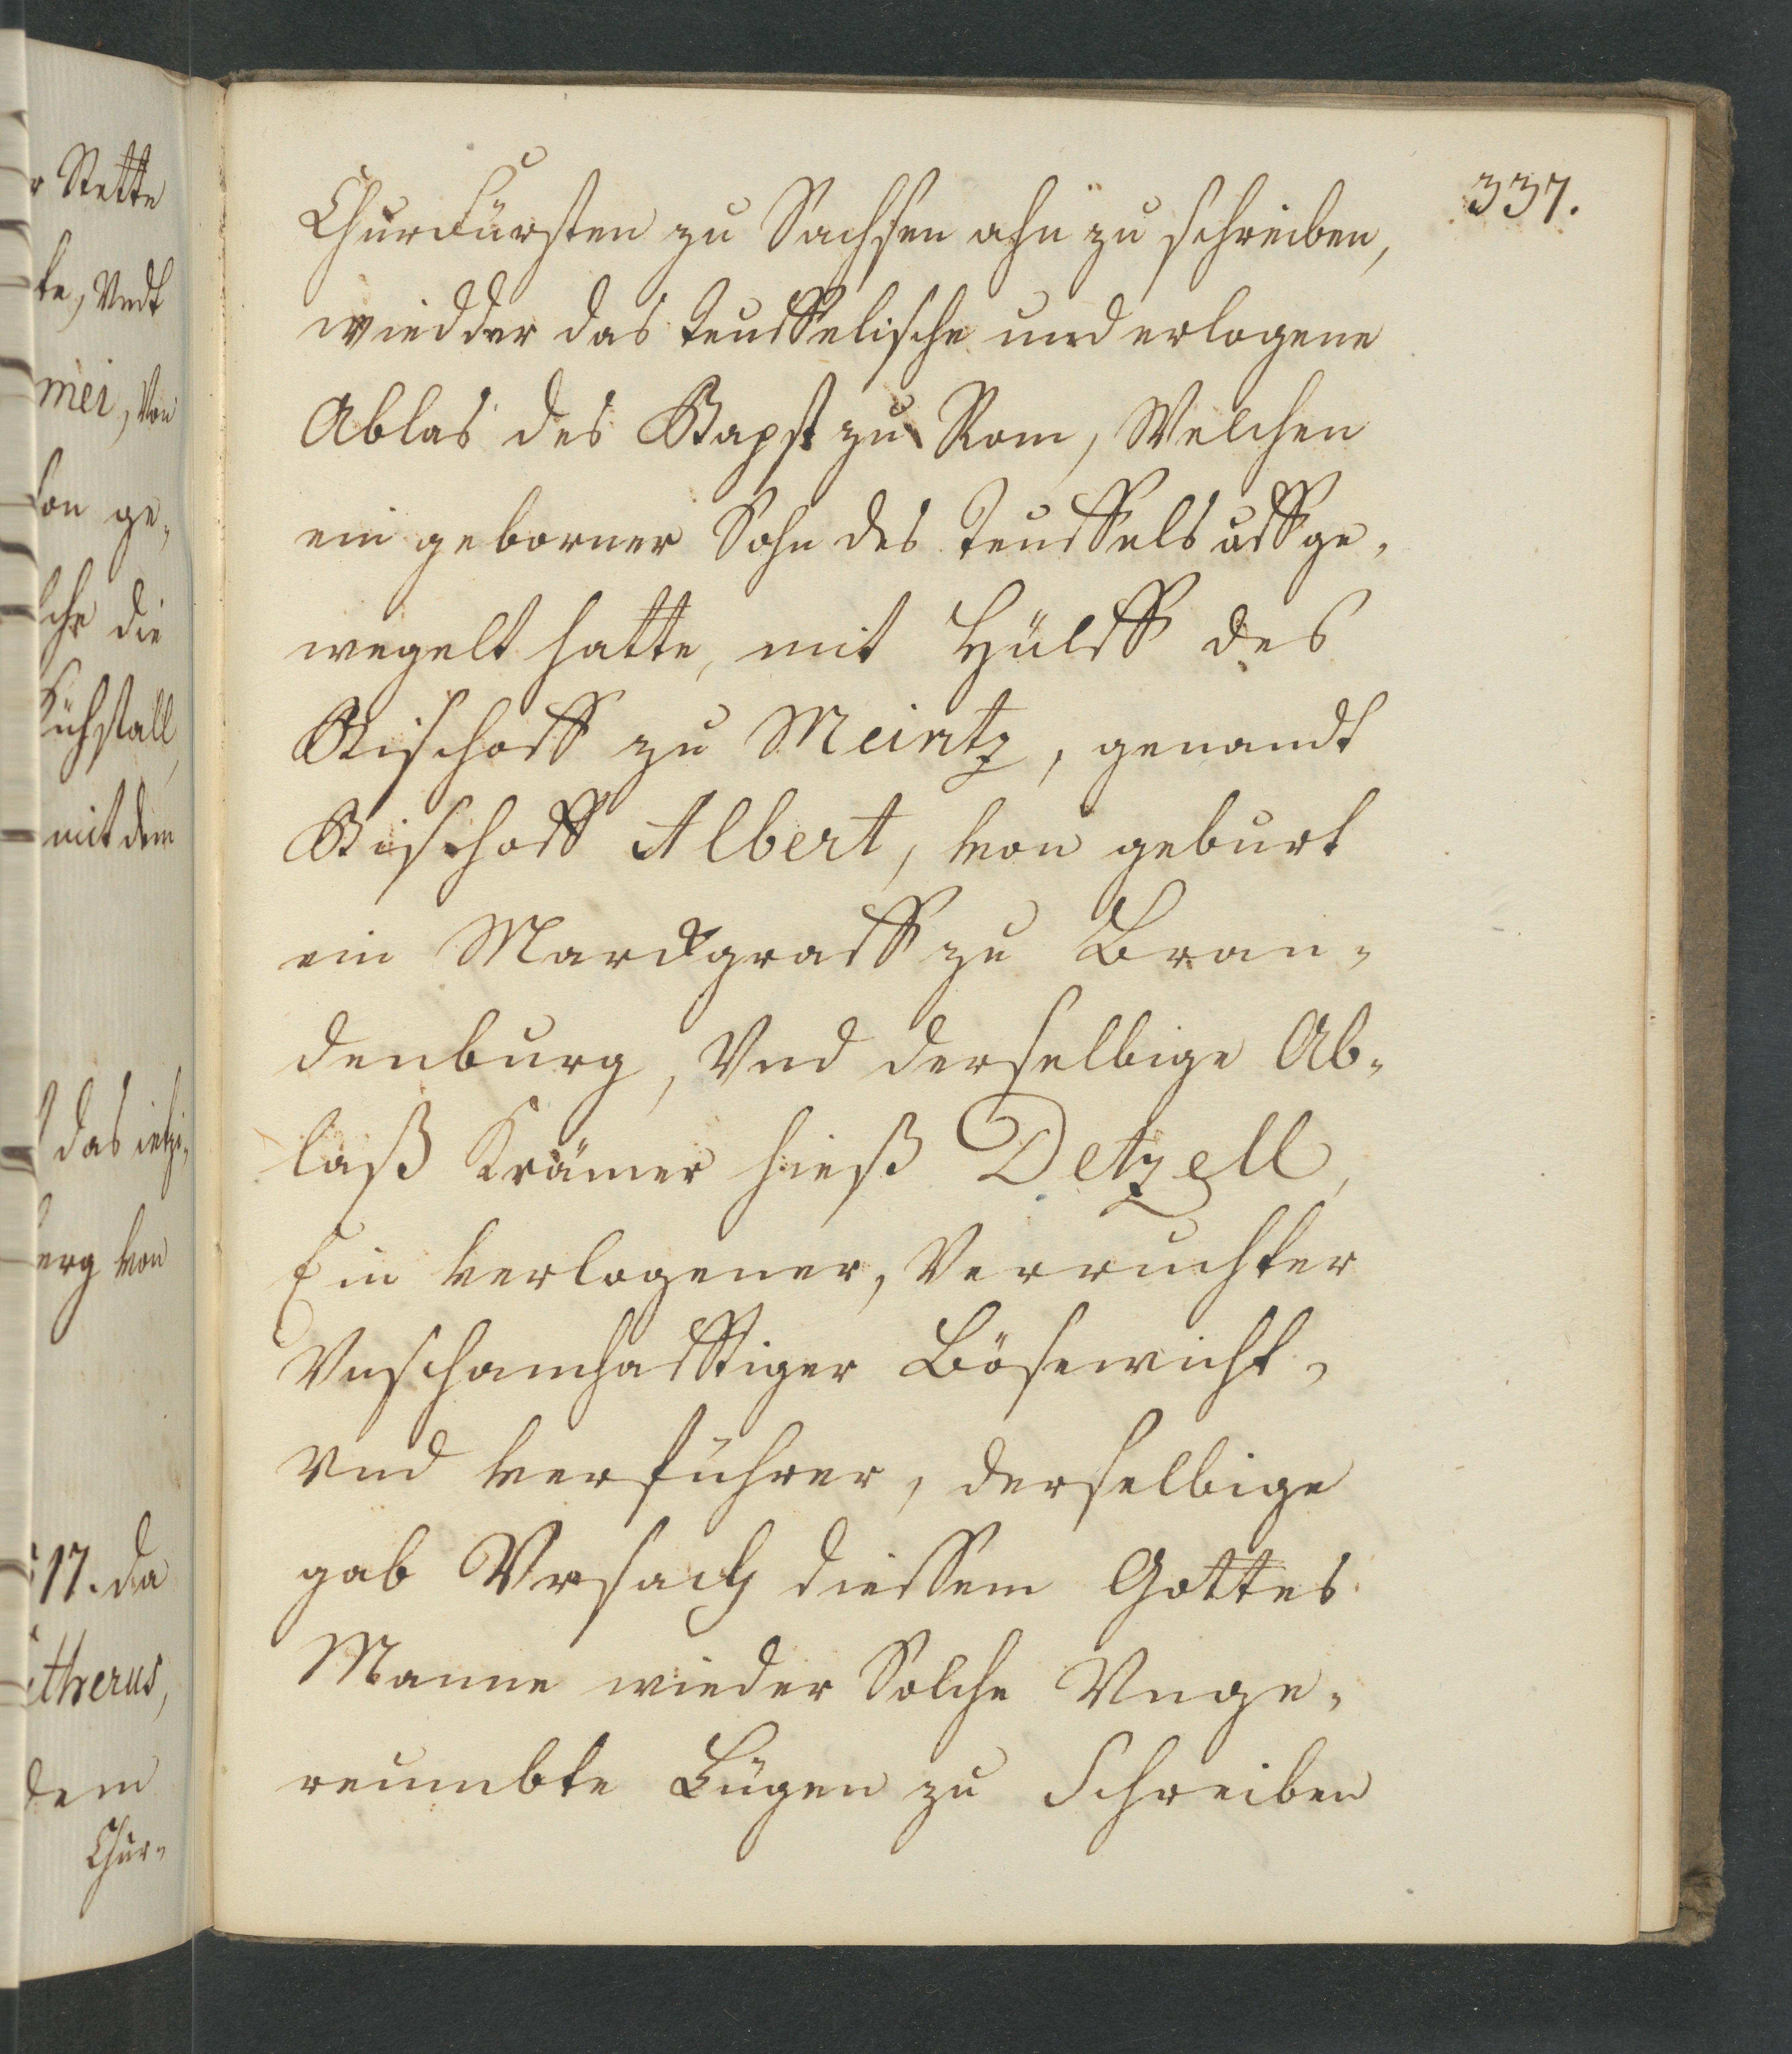 r Stette
te, Vndt
mei, Von
son ge„
lche die
Kühstall,
mit dem
das ietzi„
berg von
517. da
utherus,
dem
Chur„
337.
ChurFürsten zu Sachsen ahn zu schreiben,
wiedder das teuffelische und erlogene
Ablas des Bapst zu Rom, Welchen
ein geborner Sohn des Teuffels uffge„
wegelt hatte, mit Hülff des
Bischoff zu Meintz, genandt
Bischoff Albert, von geburt
ein Marckgraff zu Bran„
denburg, Vnd derselbige Ab„
laß Krämer hieß Detzell,
Ein verlogener, Verruchter
Vnschamhafftiger Bösewicht,
Vnd verführer, derselbige
gab Vrsach diessem Gottes
Manne wieder Solche Vnge„
reumbte Lügen zu Schreiben